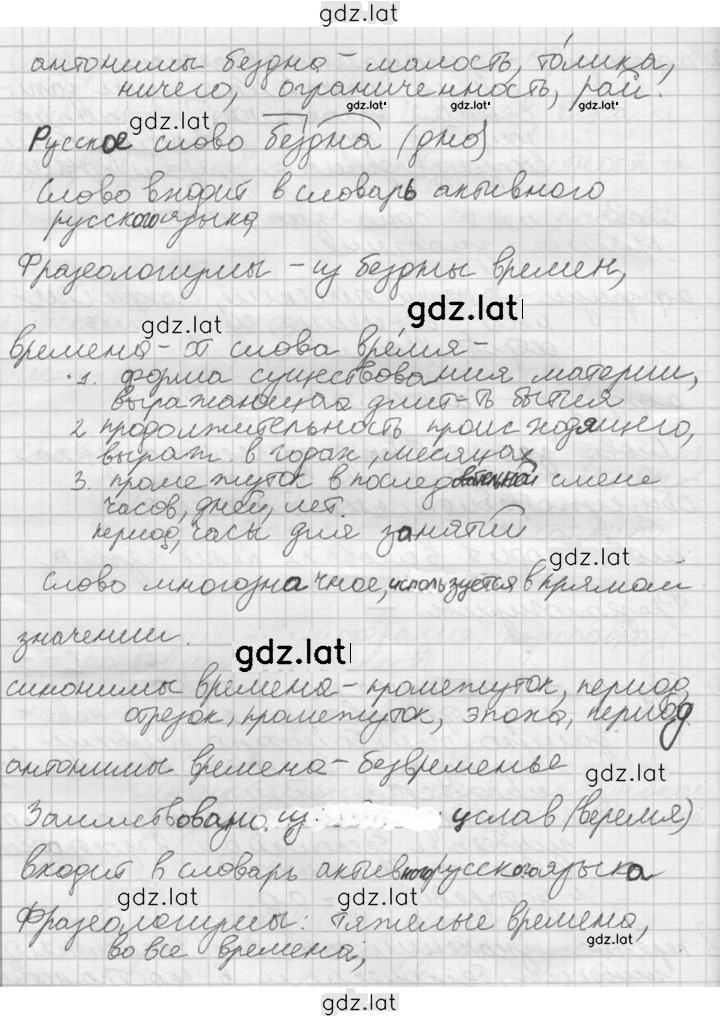 gdz.lat
антонимы бездна – малость, то́лика,
ничего, ограниченность, рай.
gdz.lat
gdz.lat
gdz.lat
Русское слово бездна (дно)
Слово входит в словарь активного
русского языка
Фразеологизмы – из бездны времен,
gdz.lat
gdz.lat
времена – от слова вре́мя –
1. форма существования материи,
выражающая длит-ть бытия
2 продолжительность происходящего,
выраж. в годах, месяцах
3. промежуток в последовательной смене
часов, дней, лет.
период, часы для занятий
gdz.lat
Слово многозначное, используется в прямом
значении.
gdz.lat
синонимы времена – промежуток, период,
отрезок, промежуток, эпоха, период
антонимы времена – безвременье
gdz.lat
Заимствовано из цслав (веремя)
входит в словарь активного русского языка
gdz.lat
gdz.lat
Фразеологизмы: тяжелые времена,
во все времена;
gdz.lat
gdz.lat